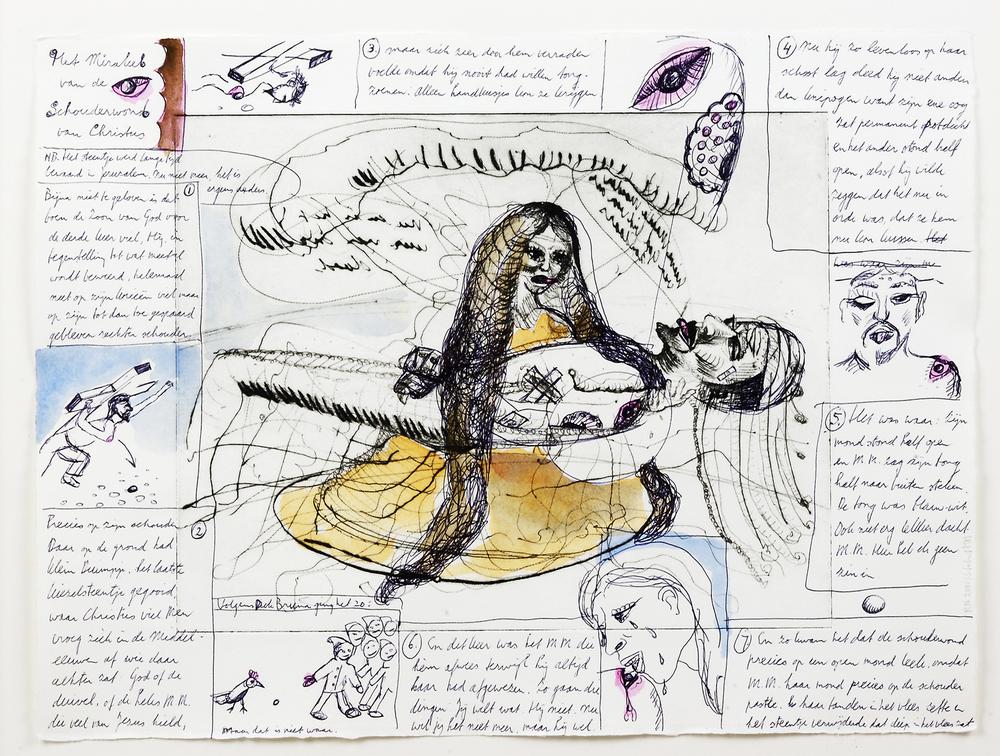 Het Mirakel
van de
Schouderwonde
van Christus
NB. Het steentje werd lange tijd
bewaard in Jeruzalem. Nu niet meer, het is
ergens anders.
1
Bijna niet te geloven is dat
toen de Zoon van God voor
de derde keer viel, Hij, in
tegenstelling tot wat meestal
wordt beweerd, helemaal
niet op zijn knieën viel maar
op zijn tot dan toe gespaard
gebleven rechter schouder
2
Precies op zijn schouder
Daar op de grond had
klein Duimpje het laatste
kiezelsteentje gegooid
waar Christus viel Men
vroeg zich in de Middel-
eeuwen af wie daar
achter zat. God of de
duivel, of de heks M.M.
die veel van Jezus hield,
3. maar zich zeer door hem verraden
voelde omdat hij nooit had willen tong-
zoenen. Alleen handkusjes kon ze krijgen
4 Nu hij zo levenloos op haar
schoot lag deed hij niet anders
dan knipogen want zijn ene oog
zat permanent potdicht
en het ander stond half
open, alsof hij wilde
zeggen dat het nu in
orde was, dat ze hem
nu kon kussen. Het
5. Het was waar. Zijn
mond stond half open
en M.M. zag zijn tong
half naar buiten steken.
De tong was blauw-wit.
Ook niet erg lekker dacht
M.M. Hier heb ik geen
zin in
Volgens Dick Bruna ging het zo:
Maar dat is niet waar.
6. En dit keer was het M.M. die
hem afwees terwijl hij altijd
haar had afgewezen. Zo gaan die
dingen. Jij wilt wat Hij niet. Nu
wil jij het niet meer, maar hij wel
7 En zo kwam het dat de schouderwond
precies op een open mond leek, omdat
M.M. haar mond precies op de schouder
pastte. En haar tanden in het vlees zette en
het steentje verwijderde dat diep in het vlees zat